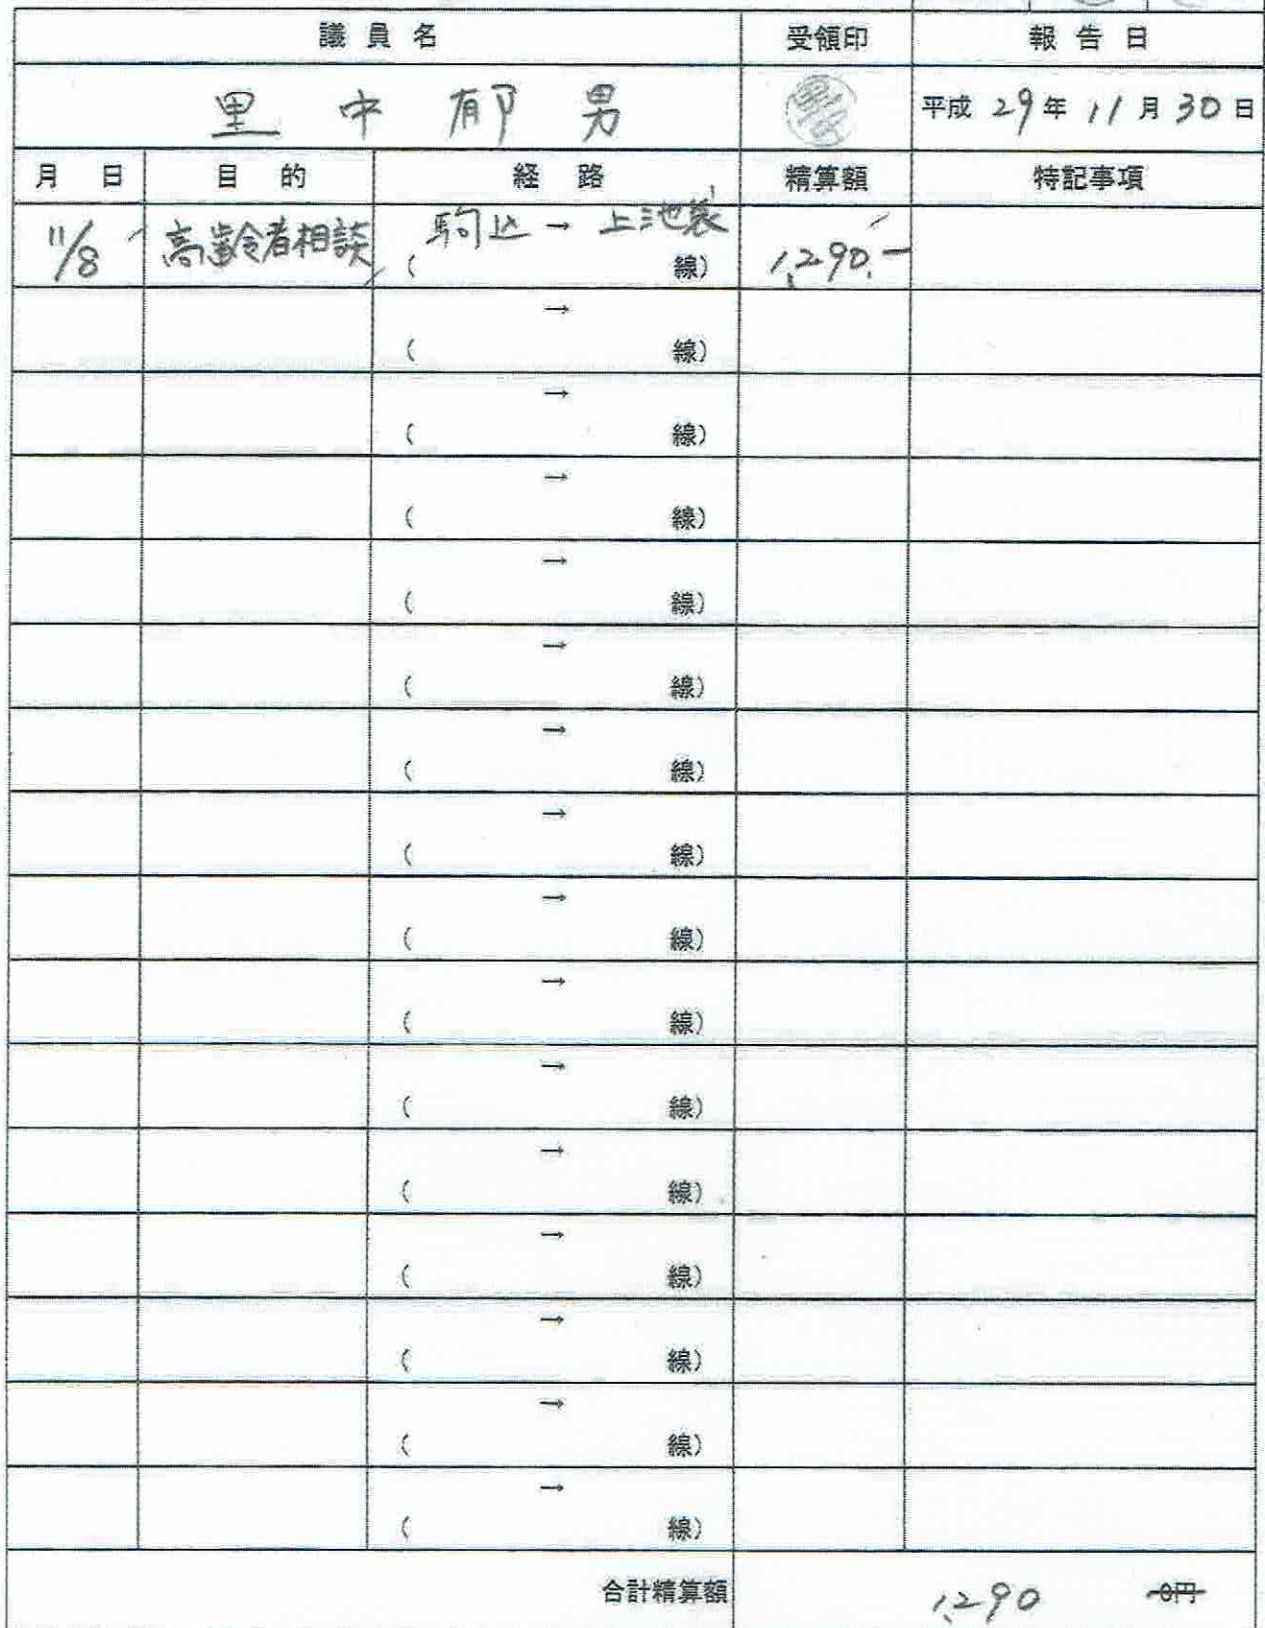 議員名 受領印 報告日
里中郁男 平成 29年 11月 30日
月日 目的 経路 精算額 特記事項
11/8 高齢者相談 駒込 → 上池袋 1,290.-
( 線)
→
( 線)
→
( 線)
→
( 線)
→
( 線)
→
( 線)
→
( 線)
→
( 線)
→
( 線)
→
( 線)
→
( 線)
→
( 線)
→
( 線)
→
( 線)
→
( 線)
→
( 線)
合計精算額 1,290 0円